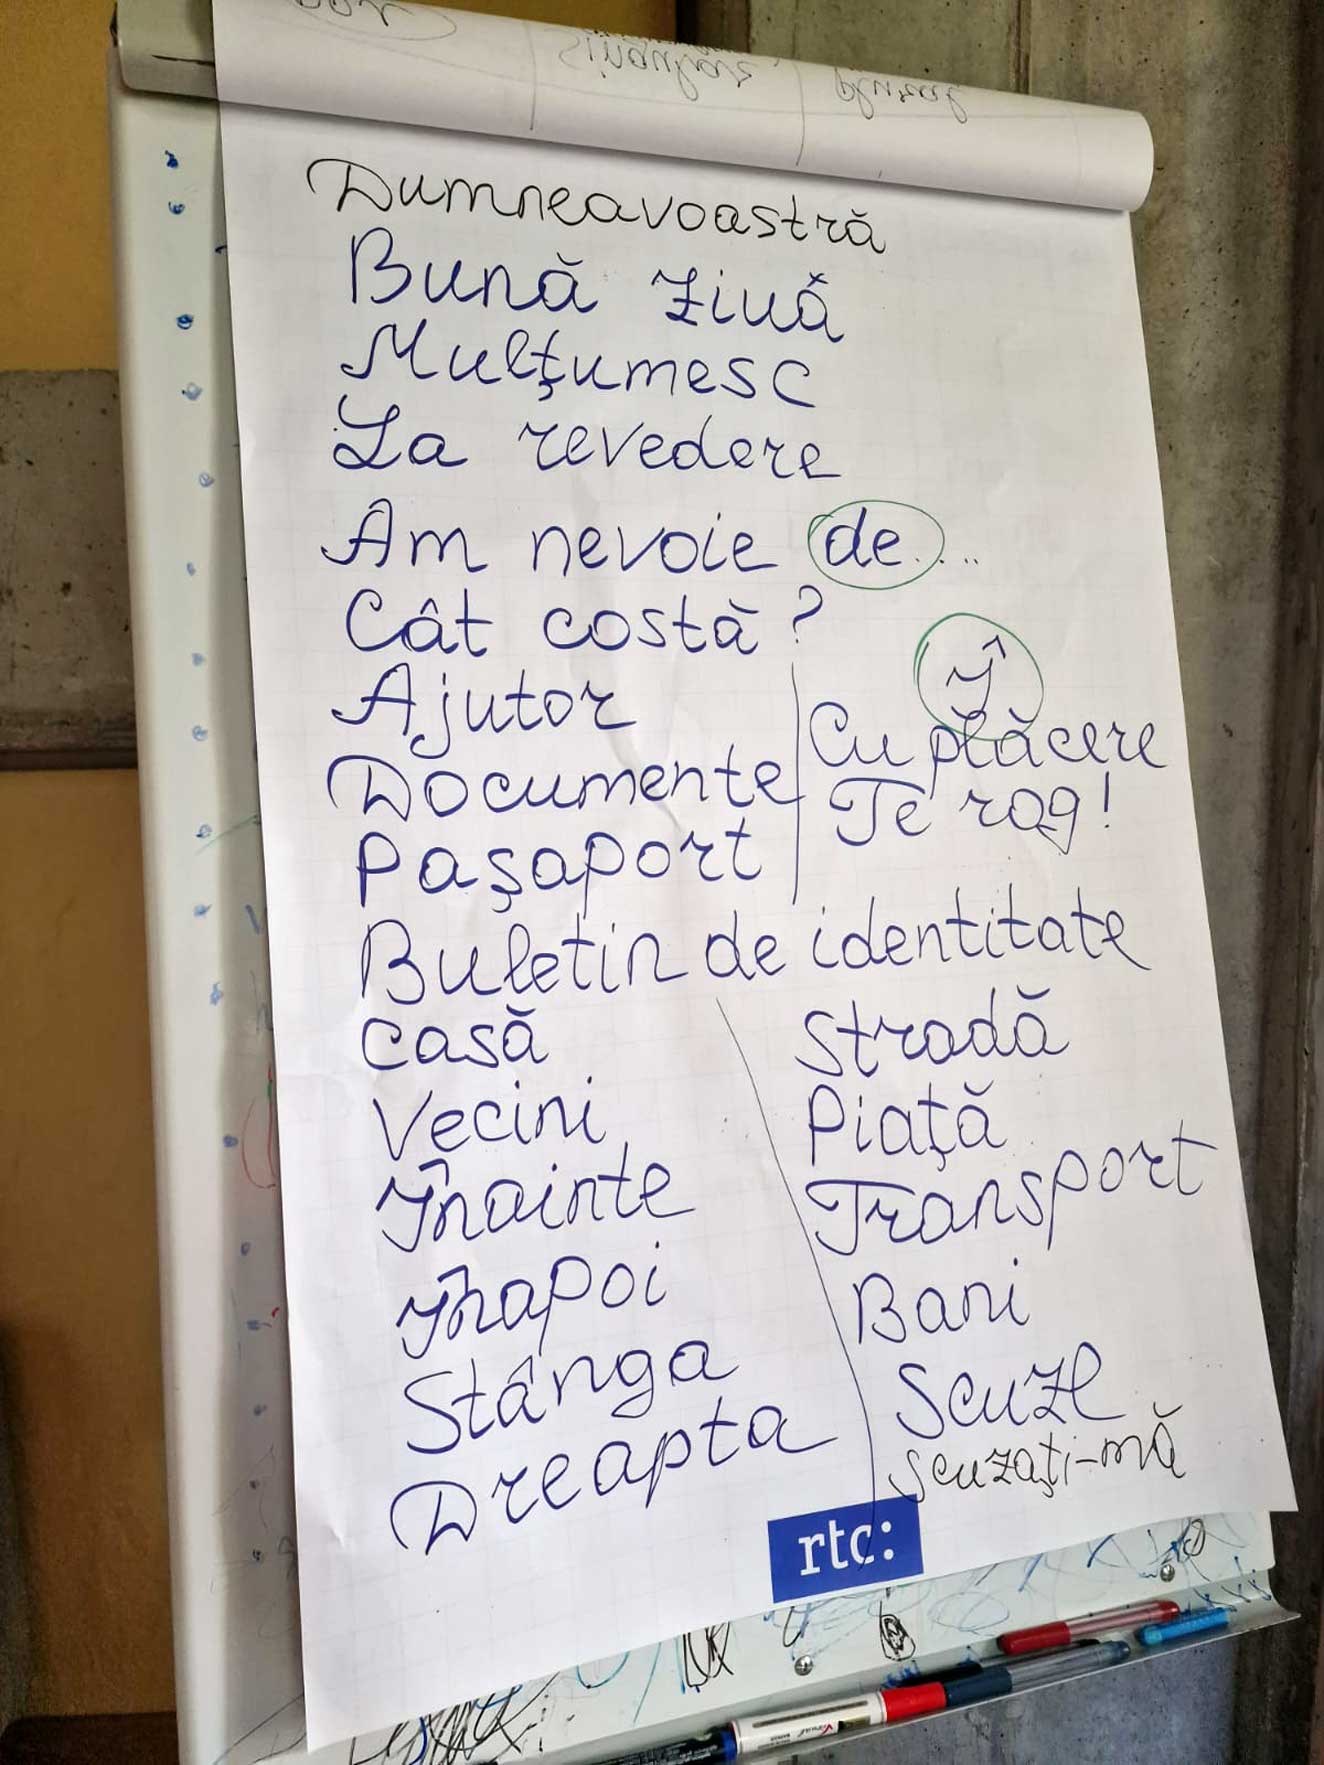 Singular
Plural
Dumneavoastră
Bună ziuă
Mulţumesc
La revedere
Am nevoie de....
Cât costă?
Ajutor
Documente
Paşaport
Î
Cu plăcere
Te rog!
Buletin de identitate
Casă
Vecini
Înainte
Înapoi
Stânga
Dreapta
Stradă
Piaţă
Transport
Bani
Scuze
Scuzaţi-mă
rtc: